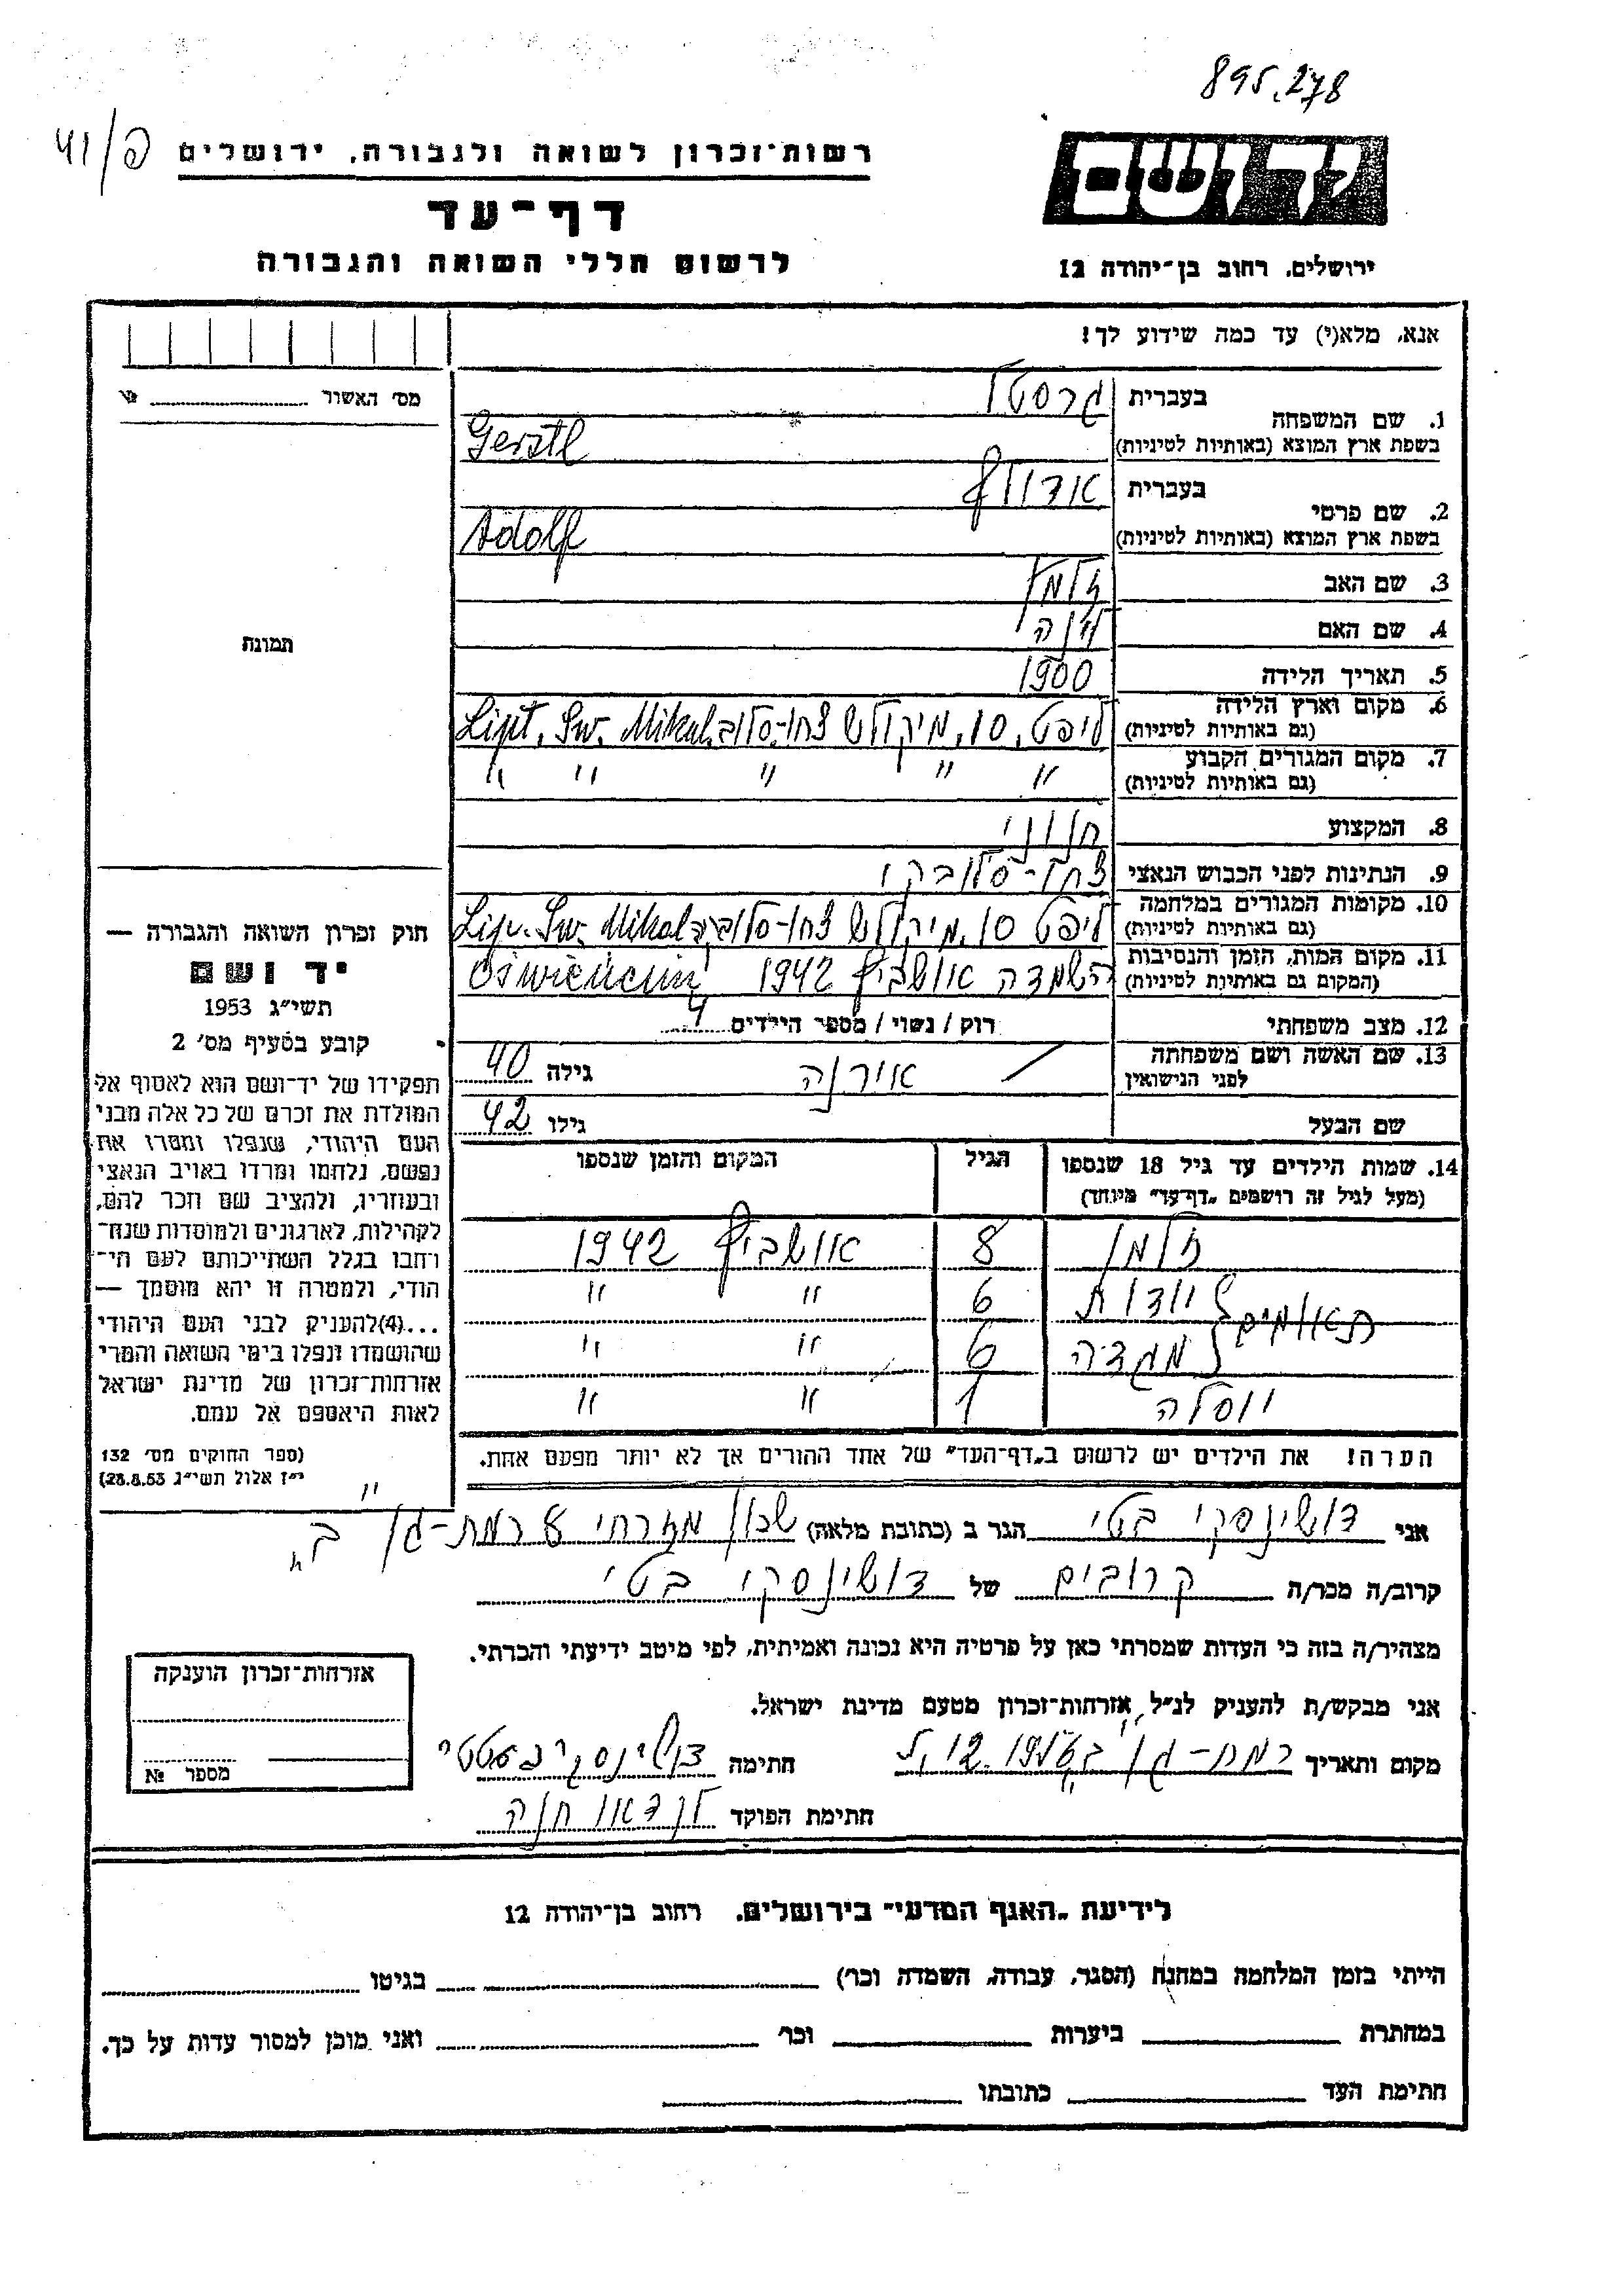 895.278
פ/41
רשות־זכרון לשואה ולגבורה, ירושלים
דף־עד
לרשום חללי השואה והגבורה
יד ושם
ירושלים, רחוב בן־יהודה 12
אנא, מלא(י) עד כמה שידוע לך!
מס׳ האשור №
1. שם המשפחה
בעברית גרסטל
בשפת ארץ המוצא (באותיות לטיניות) Gerstl
2. שם פרטי
בעברית אדולף
בשפת ארץ המוצא (באותיות לטיניות) Adolf
3. שם האב זלמן
4. שם האם
5. תאריך הלידה 1900
6. מקום וארץ הלידה
(גם באותיות לטיניות) ליפט. ס. מיקולש צכו-סלוב. Lipt. Sw. Mikul.
7. מקום המגורים הקבוע
(גם באותיות לטיניות) " " " " "
8. המקצוע חנוני
9. הנתינות לפני הכבוש הנאצי צכו-סלובקי
10. מקומות המגורים במלחמה
(גם באותיות לטיניות) ליפט ס. מיקולש צכו-סלוב. Lip. Sw. Mikul
11. מקום המות, הזמן והנסיבות
(המקום גם באותיות לטיניות) השמדה אושביץ 1942 Oświęncim
12. מצב משפחתי רוק / נשוי / מספר הילדים 4
13. שם האשה ושם משפחתה
לפני הנישואין אירנה / גילה 40
שם הבעל גילו 42
14. שמות הילדים עד גיל 18 שנספו
(מעל לגיל זה רושמים „דף־עד” מיוחד)
הגיל
המקום והזמן שנספו
זלמן 8 אושביץ 1942
תאומים יודית 6 " "
מגדה 6 " "
יוסלה 1 " "
הערה! את הילדים יש לרשום ב„דף־העד” של אחד ההורים אך לא יותר מפעם אחת.
תמונה
חוק זכרון השואה והגבורה —
יד ושם
תשי״ג 1953
קובע בסעיף מס׳ 2
תפקידו של יד־ושם הוא לאסוף אל
המולדת את זכרם של כל אלה מבני
העם היהודי, שנפלו ומסרו את
נפשם, נלחמו ומרדו באויב הנאצי
ובעוזריו, ולהציב שם וזכר להם,
לקהילות, לארגונים ולמוסדות שנח־
רחבו בגלל השתייכותם לעם הי־
הודי, ולמטרה זו יהא מוסמך —
...(4)להעניק לבני העם היהודי
שהושמדו ונפלו בימי השואה והמרי
אזרחות־זכרון של מדינת ישראל
לאות היאספם אל עמם.
(ספר החוקים מס׳ 132
י״ז אלול תשי״ג 28.8.53)
אני דושינסקי בטי הגר ב (כתובת מלאה) שכון מזרחי 8 רמת-גן ב׳
קרוב/ה מכר/ה קרובים של דושינסקי בטי
מצהיר/ה בזה כי העדות שמסרתי כאן על פרטיה היא נכונה ואמיתית, לפי מיטב ידיעתי והכרתי.
אני מבקש/ת להעניק לנ״ל אזרחות־זכרון מטעם מדינת ישראל.
מקום ותאריך רמת-גן חתימה
חתימת הפוקד לנדאו חנה
אזרחות־זכרון הוענקה
מספר №
לידיעת „האגף המדעי” בירושלים, רחוב בן־יהודה 12
הייתי בזמן המלחמה במחנה (הסגר, עבודה, השמדה וכו׳) בגיטו
במחתרת ביערות וכו׳ ואני מוכן למסור עדות על כך.
חתימת העד כתובתו